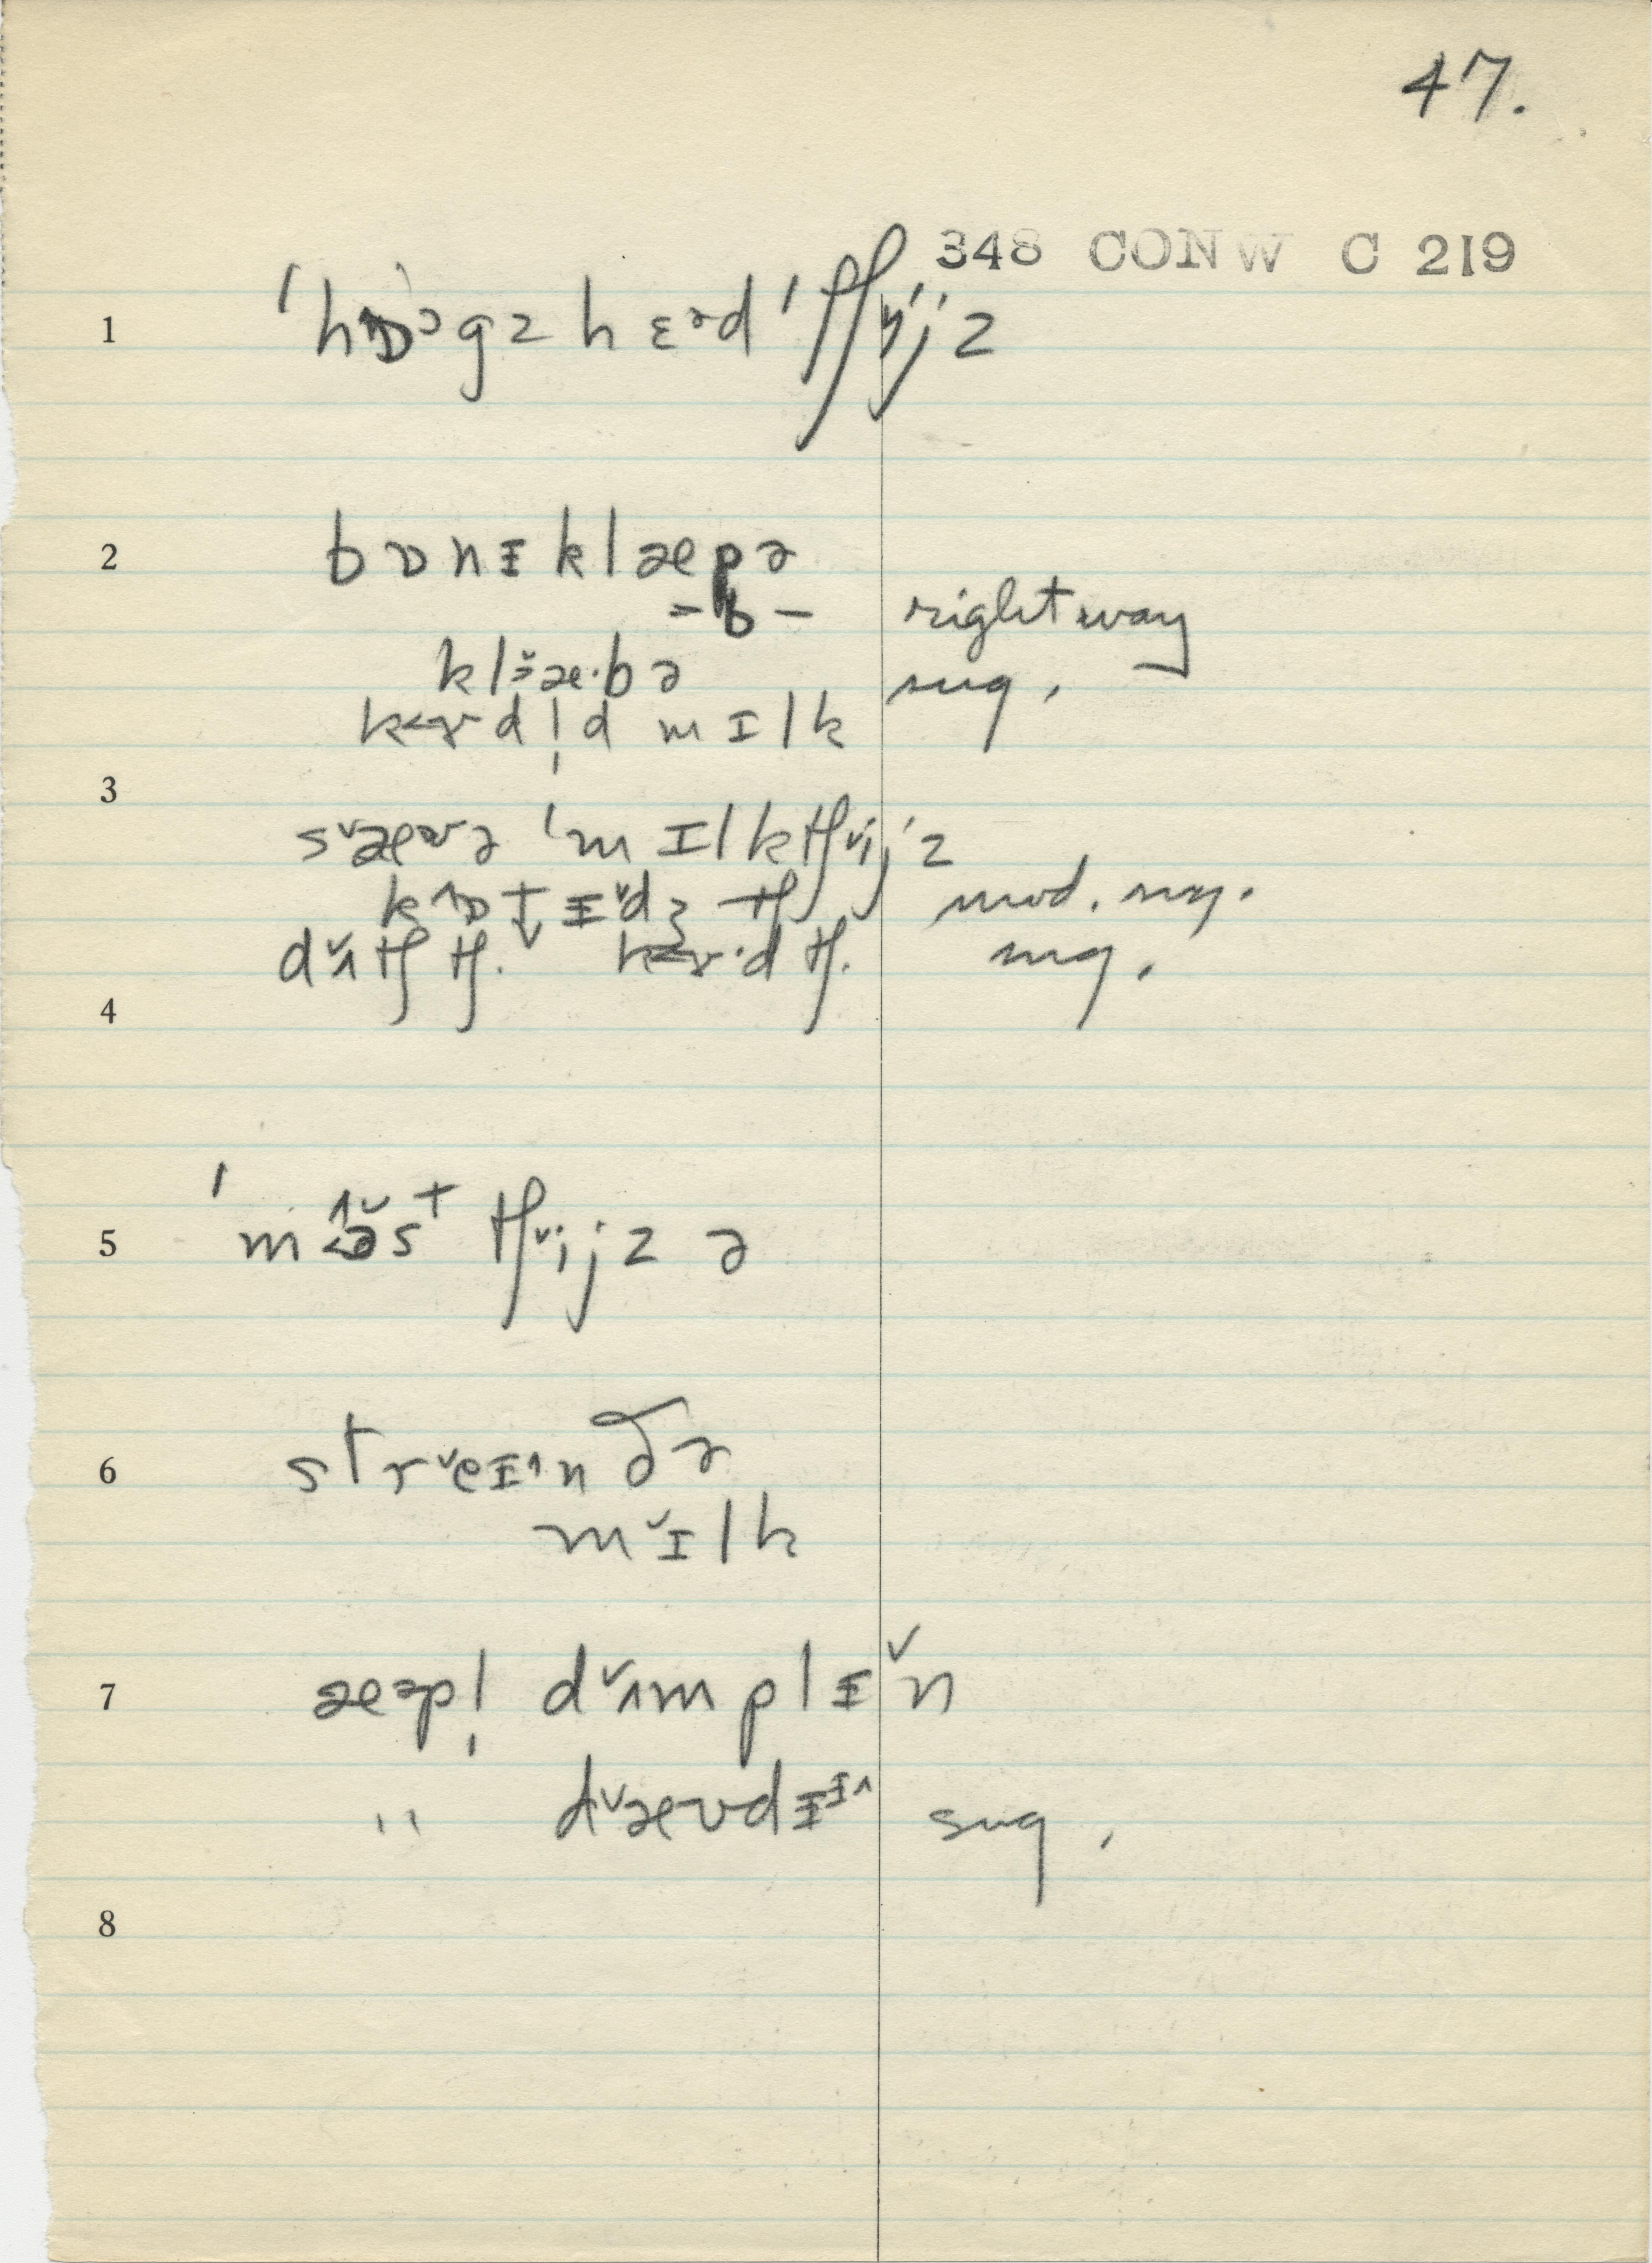 47.
348 CONW C 219
1 ˈhɒˀgz hɛɚd ˈtʃijz
2 bɒnɪklæpə
-b- right way
klæ·bə sug.
kɜ˞dl̩d mɪlk
3
sæʊə ˈmɪlktʃijz
kɒtɪdʒ tʃ mod. sug.
dʌtʃ tʃ. kɜ˞·d tʃ. sug.
4
5 ˈməsᵗ tʃijz ə
6 streɪn ðə
mɪlk
7 æəpl̩ dʌmplɪn
" dæʊdɪ sug.
8